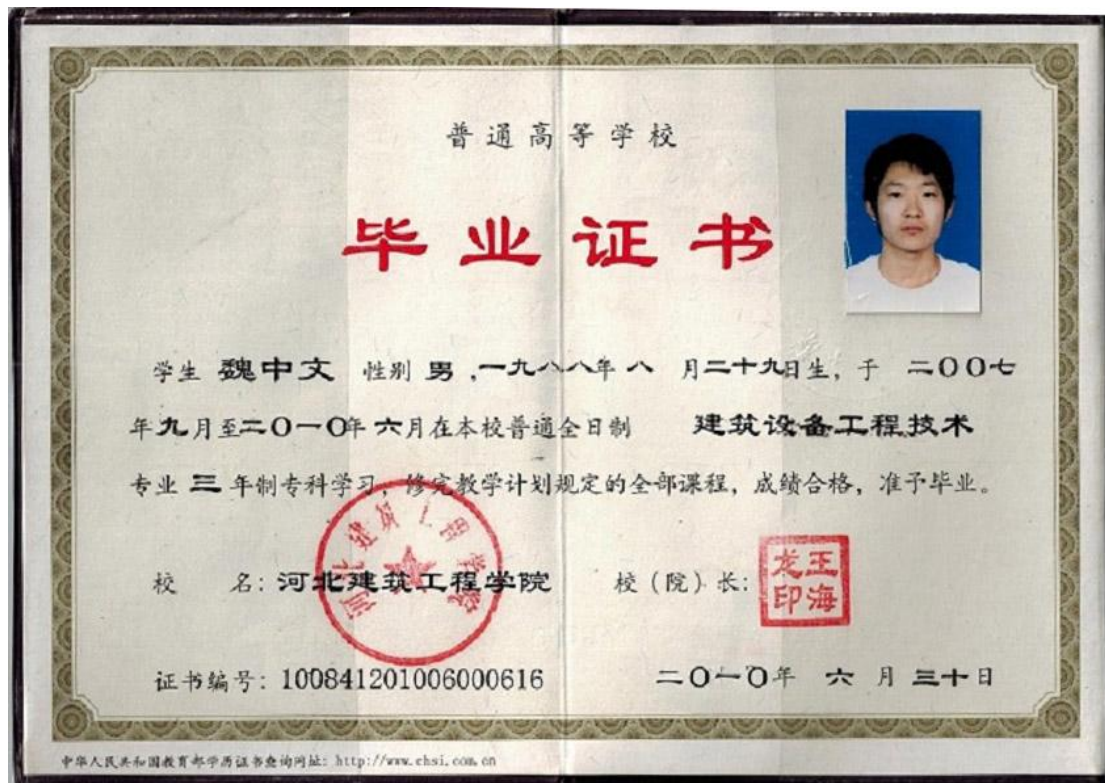 普通高等学校
毕业证书
学生 魏中文 性别 男 ,一九八八年 八 月二十九日生, 于 二〇〇七
年九月至二〇一〇年 六月在本校普通全日制 建筑设备工程技术
专业 三 年制专科学习, 修完教学计划规定的全部课程, 成绩合格, 准予毕业。
河北建筑工程学院
校 名: 河北建筑工程学院 校(院)长:
王海龙印
证书编号: 100841201006000616 二〇一〇年 六 月 三十日
中华人民共和国教育部学历证书查询网址: http://www.chsi.com.cn